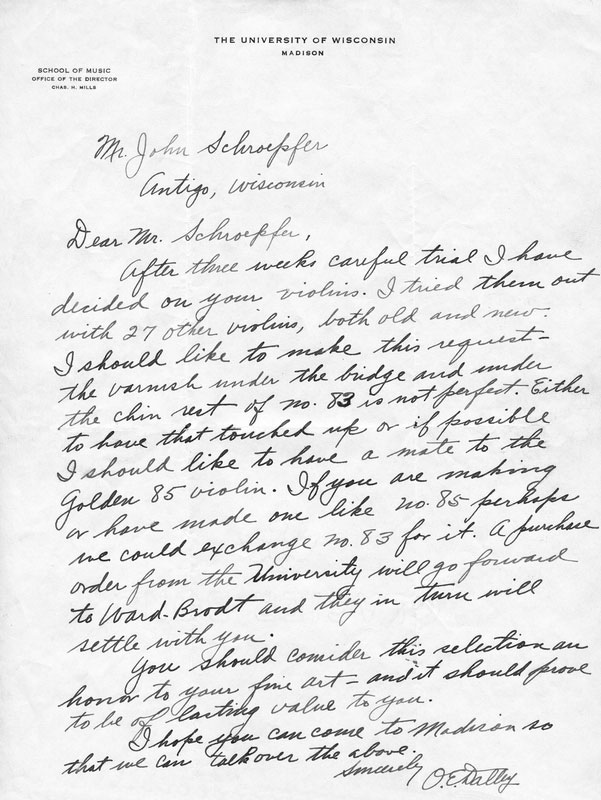 THE UNIVERSITY OF WISCONSIN
MADISON
SCHOOL OF MUSIC
OFFICE OF THE DIRECTOR
CHAS. H. MILLS
Mr. John Schroepfer
Antigo, Wisconsin
Dear Mr. Schroepfer,
After three weeks careful trial I have
decided on your violins. I tried them out
with 27 other violins, both old and new.
I should like to make this request—
the varnish under the bridge and under
the chin rest of no. 83 is not perfect. Either
to have that touched up or if possible
I should like to have a mate to the
Golden 85 violin. If you are making
or have made one like no. 85 perhaps
we could exchange no. 83 for it. A purchase
order from the University will go forward
to Ward-Brodt and they in turn will
settle with you.
You should consider this selection an
honor to your fine art — and it should prove
to be of lasting value to you.
I hope you can come to Madison so
that we can talk over the above.
Sincerely O.E. Dalley